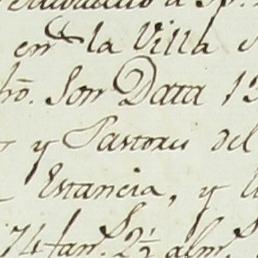 en la Villa
Son Data 13
y Pastores del
Estancia, y
74 fan.s 2½ alm.s